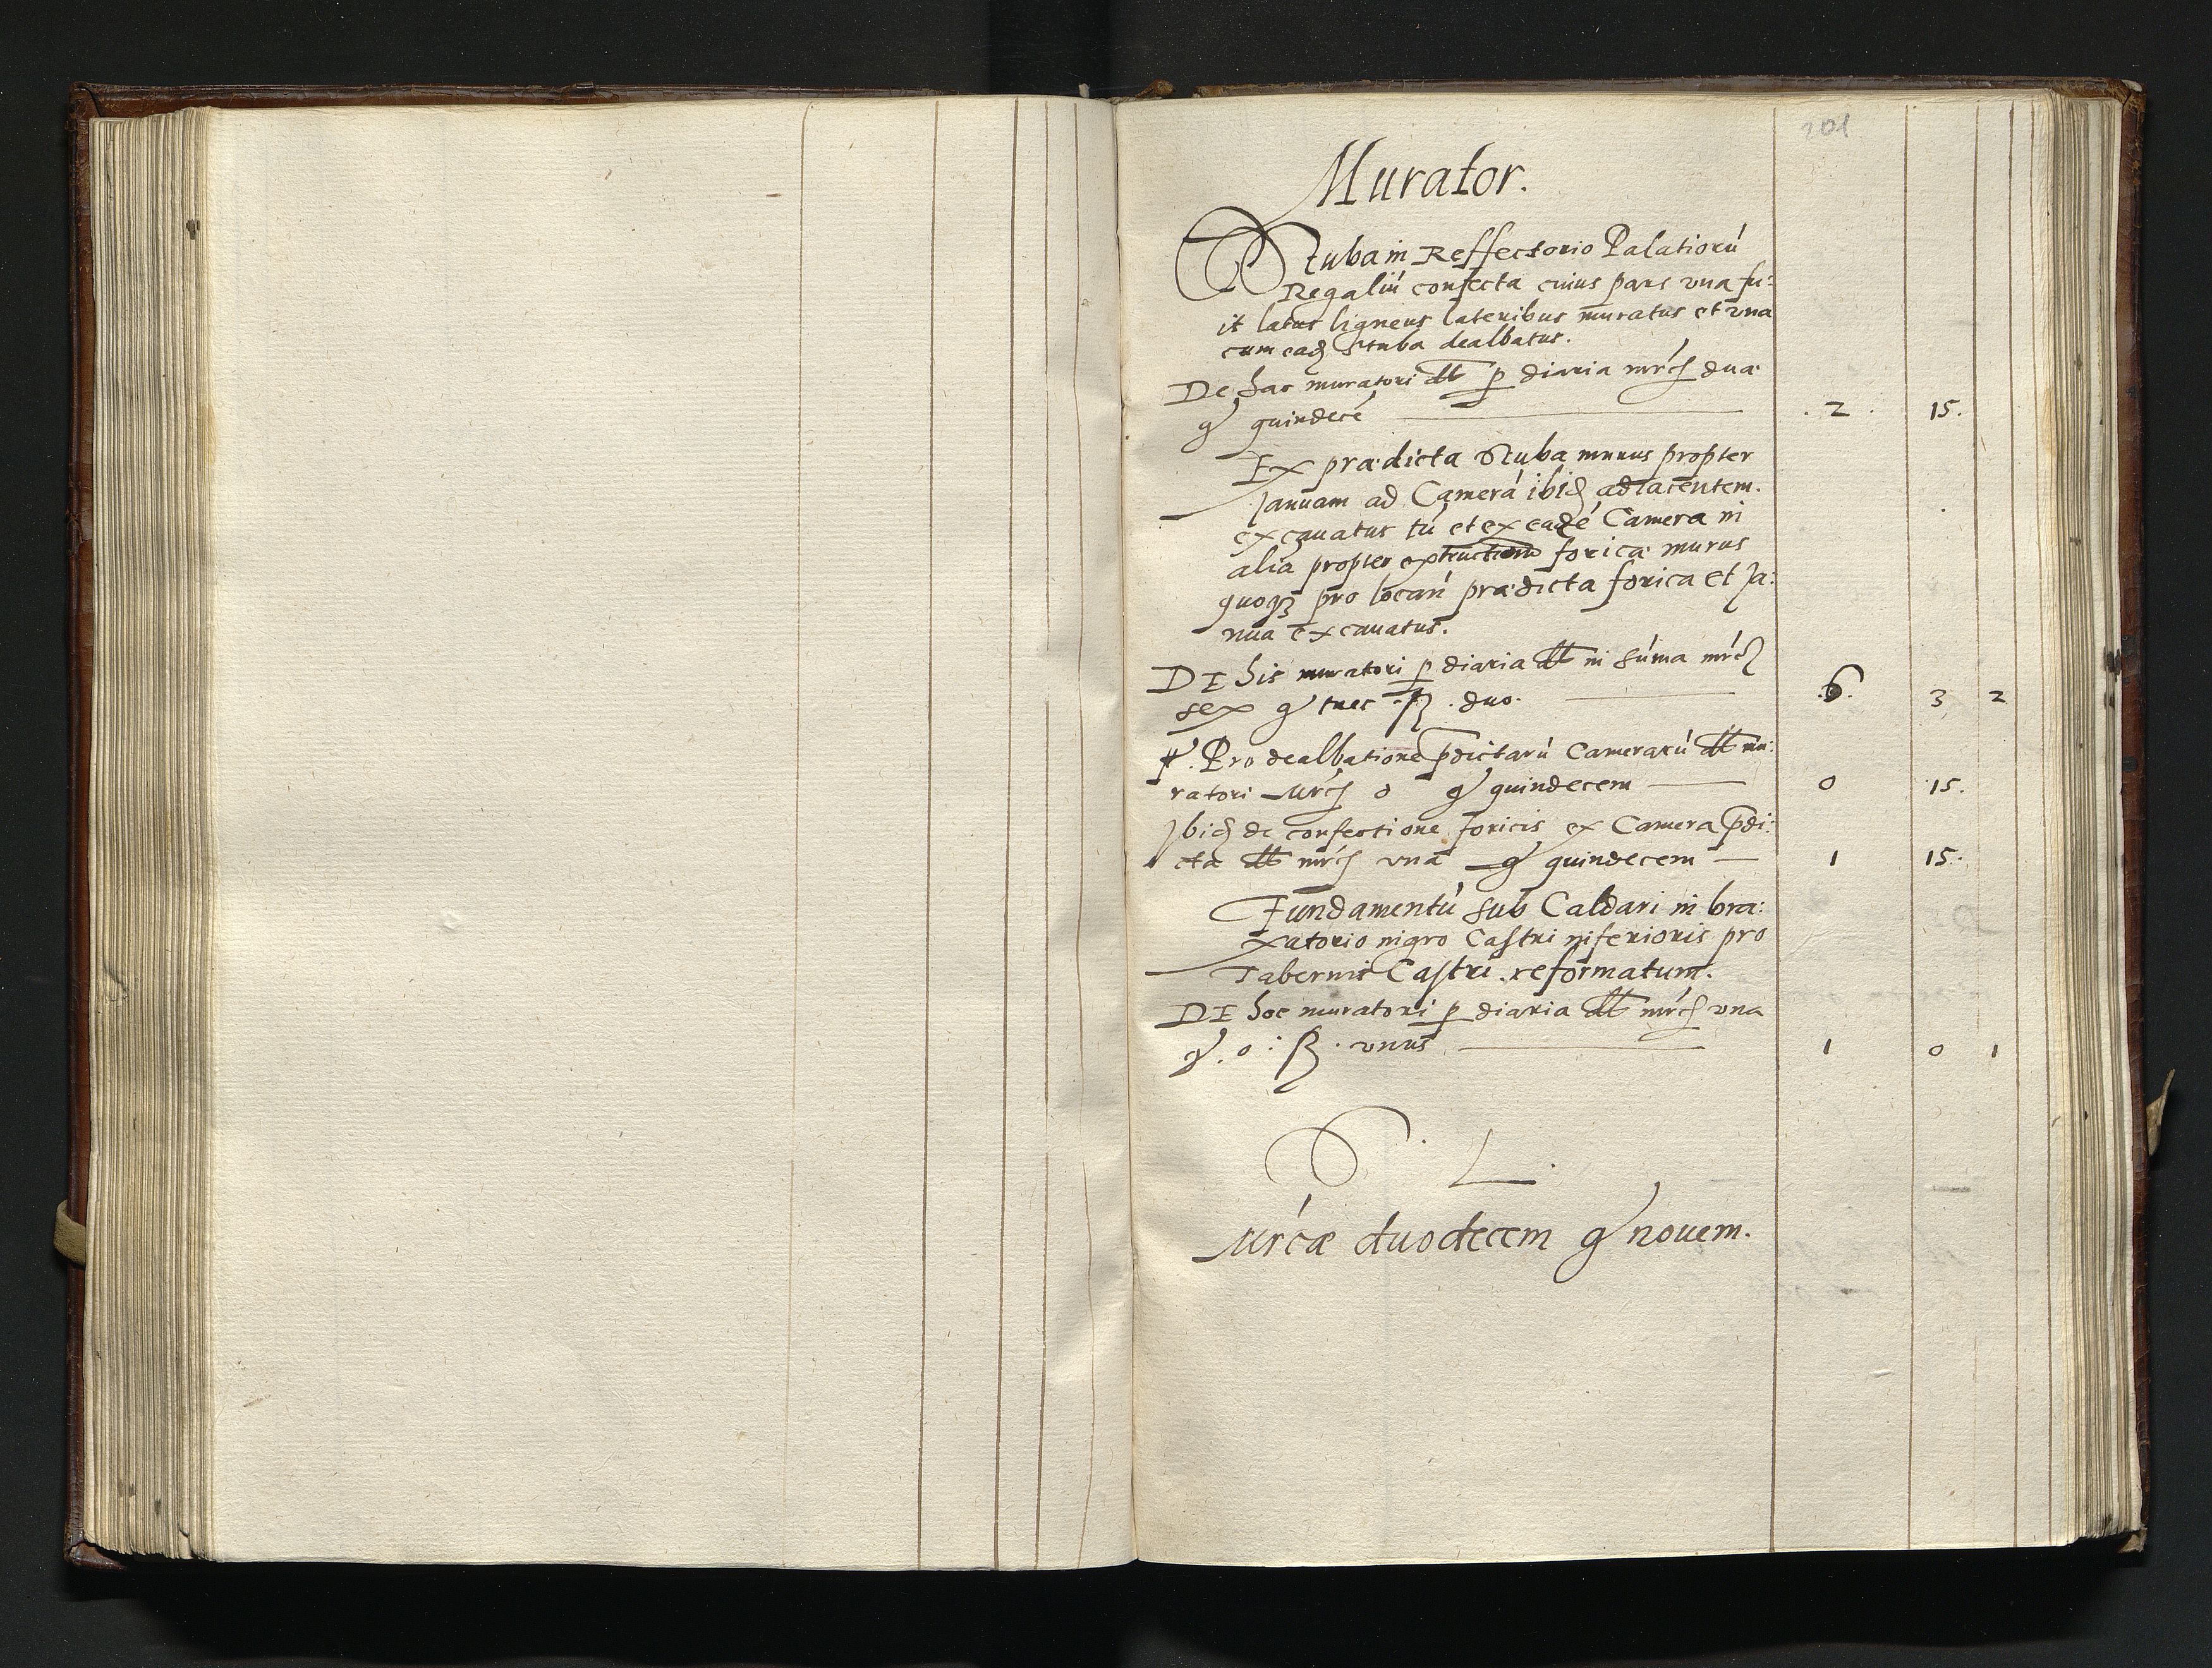 201
Murator.
Stuba in Reffectorio Palatiorú
Regaliú confecta cuius pars vna fu:
it latus ligneus lateribus muratus et vna
cum ead Stuba dealbatus.
De hac muratori dtt p diaria mrc dua
g quindecé . 2 . 15.
Ex prædicta Stuba murus propter
Januam ad Camerá ibid adiacentem.
excauatus tú et ex eadé Camera in
alia propter extructionē forica murus
quoqz pro locan prædicta forica et Ja:
nua excauatus.
DE his muratori p diaria dtt in súma mrc
sex g tres ß . duo. 6. 3 2
It. Pro dealbatione pdictarú Camerarú dtt mu:
ratori Mrc o g quindecem 0 15.
Ibid de confectione foricis ex Camera pdi:
cta dtt mrc vna g quindecem 1 15.
Fundamentú sub Caldari in bra:
xatorio nigro Castri inferioris pro
Tabernis Castri reformatum.
DE hoc muratori p diaria dtt mrc vna
g . o : ß . vnus 1 0 1
S . L .
Mrcæ duodecem g nouem.